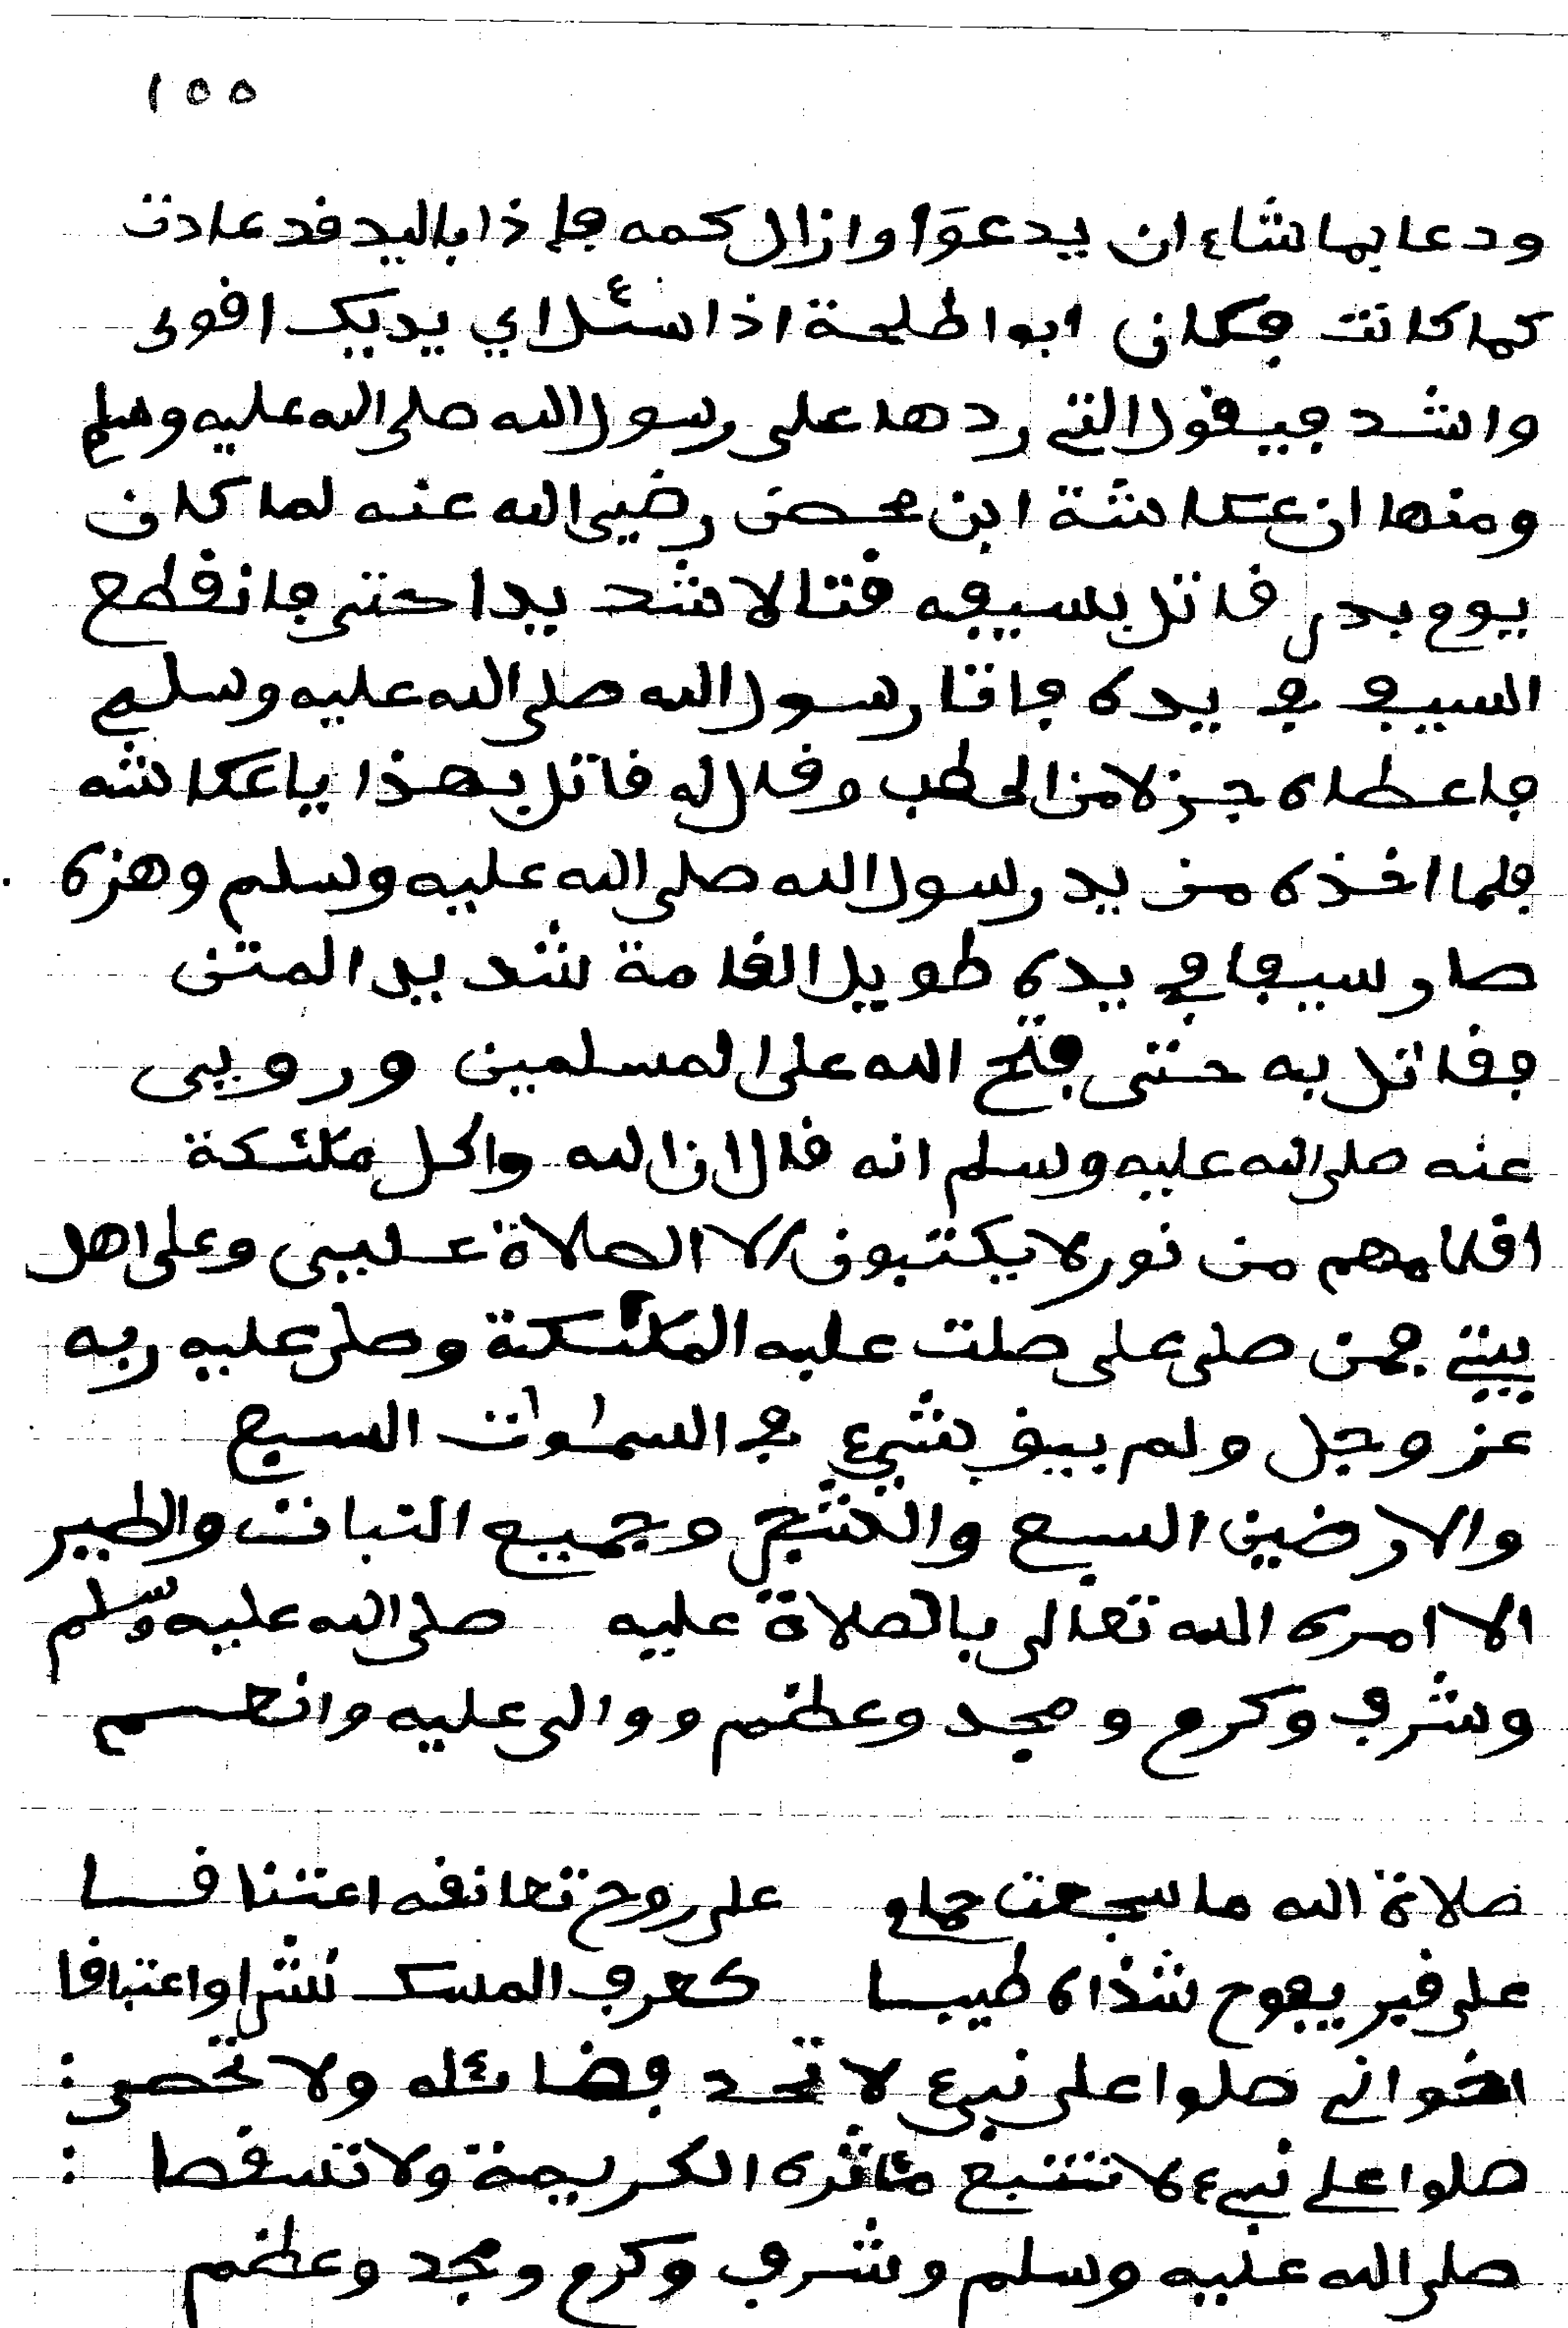 ١٥٥
ودعا بما شاء ان يدعوا وازال كمه فاذا باليد قد عادت
كما كانت فكان ابوا طلحة اذا سئل اي يديك اقوى
واشد فيقول التي ردها على رسول الله صلى الله عليه وسلم
ومنها ان عكاشة ابن محصن رضي الله عنه لما كان
يوم بدر قاتل بسيفه قتالا شديدا حتى فانقطع
السيف في يده فاتا رسول الله صلى الله عليه وسلم
فاعطاه جزلا من الحطب وقال له قاتل بهذا يا عكاشه
فلما اخذه من يد رسول الله صلى الله عليه وسلم وهزه
صار سيفا في يده طويل القامة شديد المتن
فقاتل به حتى فتح الله على المسلمين وروي
عنه صلى الله عليه وسلم انه قال ان لله واكل ملئكة
اقلامهم من نور لا يكتبون الا الصلاة علىي وعلى اهل
بيتي فمن صلى على صلت عليه الملئكة وصلى عليه ربه
عز وجل ولم يبق شيء في السموات السبع
والارضين السبع والشجر وجميع النبات والطير
الا امره الله تعالى بالصلاة عليه صلى الله عليه وسلم
وشرف وكرم ومجد وعظم ووالى عليه وانعم
صلاة الله ما سجعت حمام على روح تعانقه اعتناقا
على قبر يفوح شذاه طيبا كعرف المسك نشرا واعتباقا
اخواني صلوا على نبيء لا تحد فضائله ولا تحصى :
صلوا على نبيء لا تتتبع مئاثره الكريمة ولا تسقصا :
صلى الله عليه وسلم وشرف وكرم ومجد وعظم